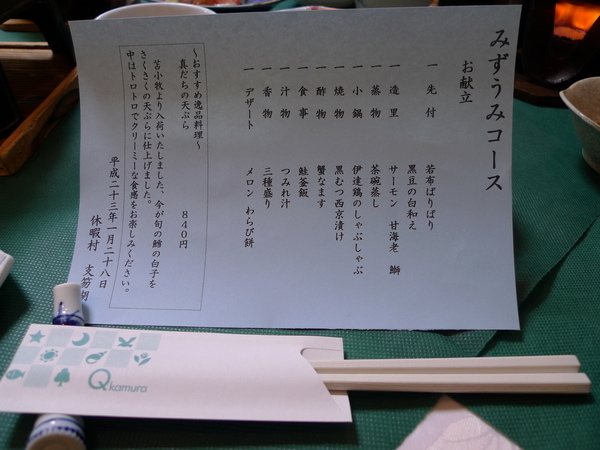 みずうみコース
お献立
一 先付 若布ぱりぱり
黒豆の白和え
一 造里 サーモン 甘海老 鰤
一 蒸物 茶碗蒸し
一 小鍋 伊達鶏のしゃぶしゃぶ
一 焼物 黒むつ西京漬け
一 酢物 蟹なます
一 食事 鮭釜飯
一 汁物 つみれ汁
一 香物 三種盛り
一 デザート メロン わらび餅
～おすすめ逸品料理～
真だちの天ぷら 840円
苫小牧より入荷いたしました、今が旬の鱈の白子を
さくさくの天ぷらに仕上げました。
中はトロトロでクリーミーな食感をお楽しみください。
平成二十三年一月二十八日
休暇村 支笏湖
Qkamura